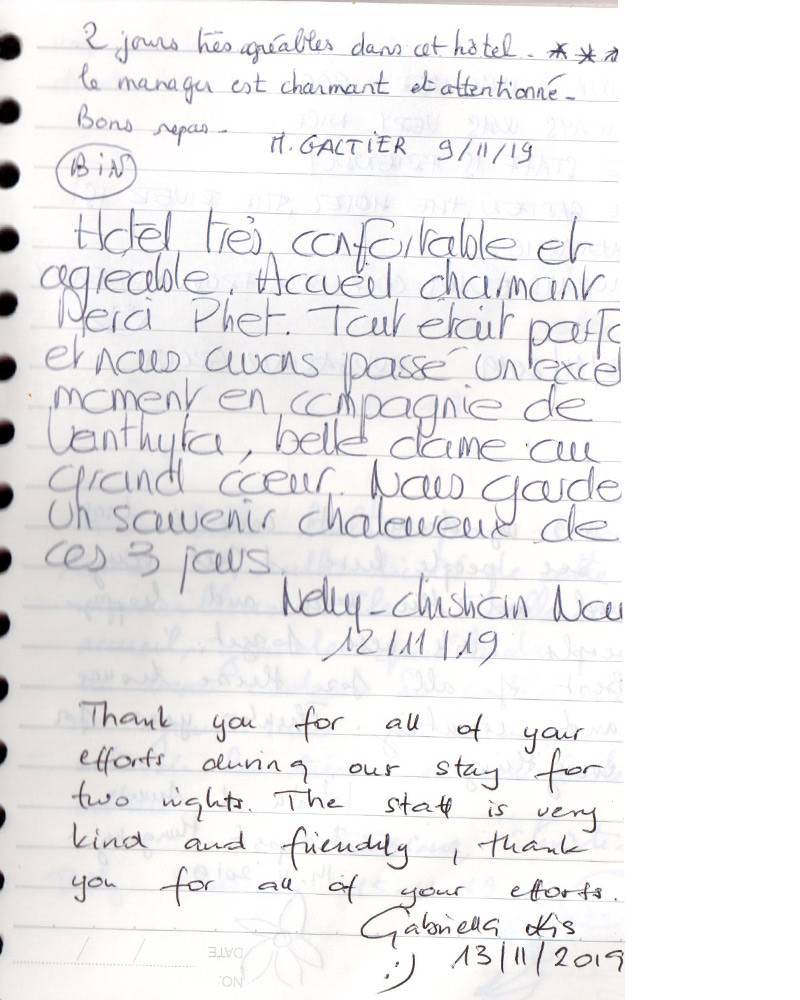 2 jours très agréables dans cet hôtel. ***
le manager est charmant et attentionné.
Bons repas.
M. GALTIER 9/11/19
BiN
Hotel très confortable et
agreable. Accueil charmant
Merci Phet. Tout etait parfa
et nous avons passé un excel
moment en compagnie de
Vanthyka, belle dame au
grand coeur. Nous garde
un souvenir chaleureux de
ces 3 jours.
Nelly-christian Nau
12/11/19
Thank you for all of your
efforts during our stay for
two nights. The staff is very
kind and friendly, thank
you for all of your efforts.
Gabriella Kis
:) 13/11/2019
DATE
NO.